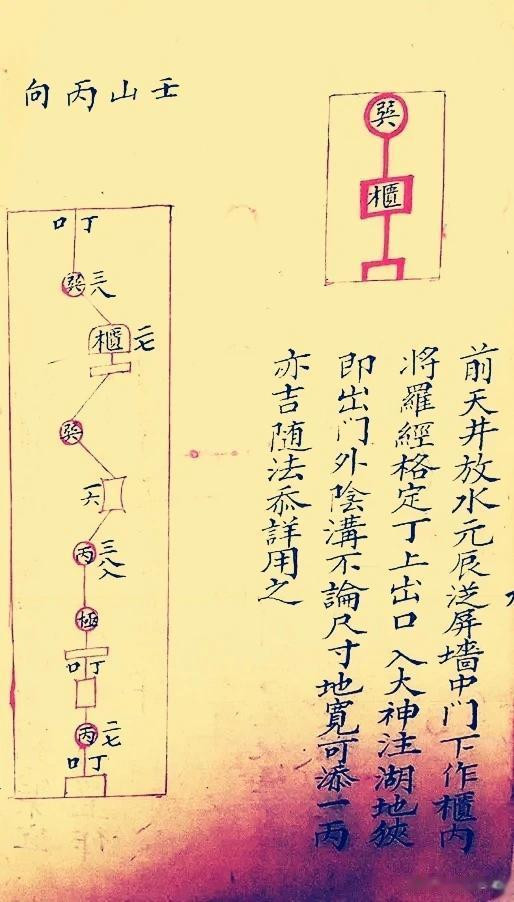 壬山丙向
巽
櫃
前天井放水元辰泛屏墻中门下作櫃内
將羅經格定丁上出口入大神注湖地狹
即出门外陰溝不論尺寸地寬可添一丙
亦吉随法叅詳用之
丁口
巽 三八
櫃 二七
巽
一六
丙 三八
極
丁口
丙 二七
丁口